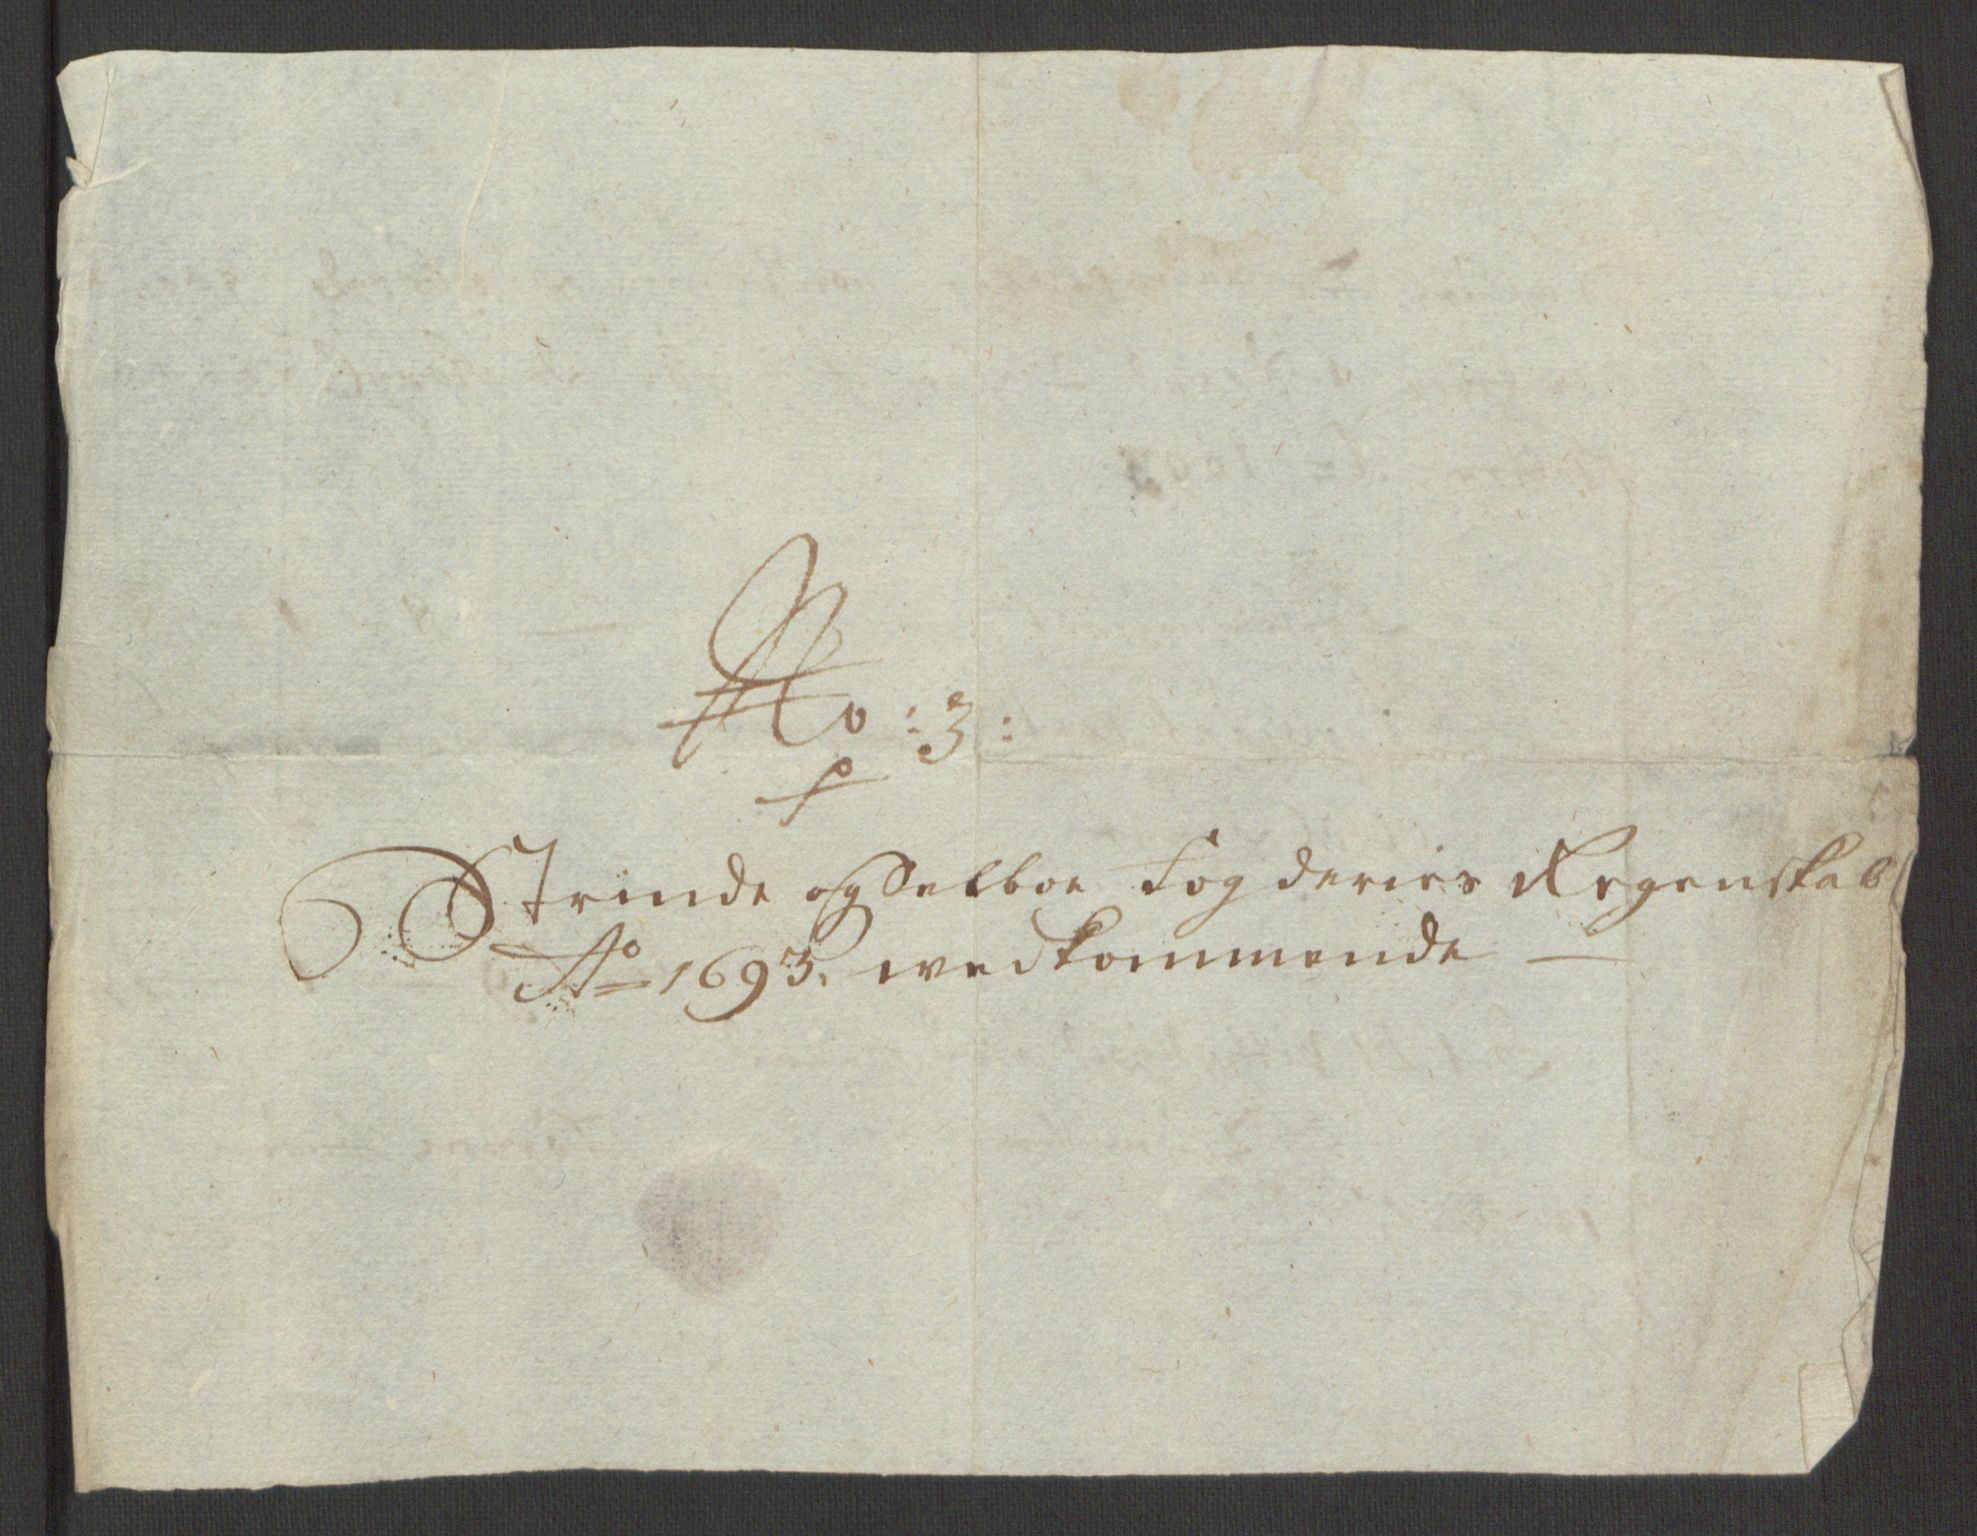 No: 3:
Strinde og Selboe Fogderies Regenskab
Ao 1693. wedkommende —